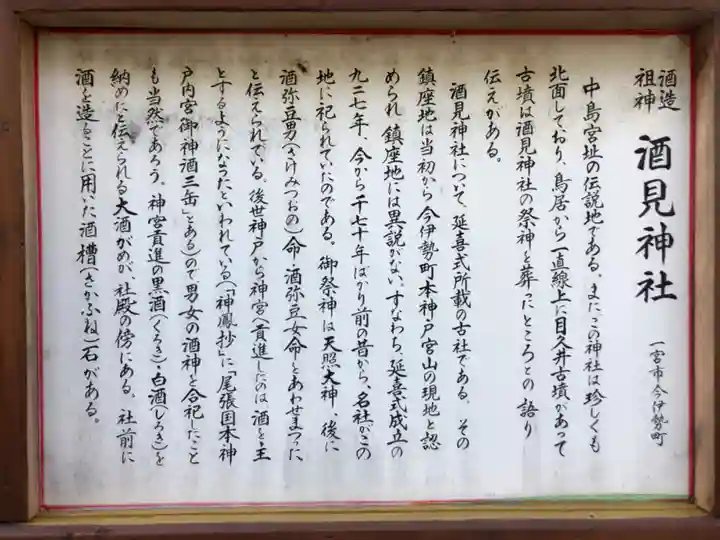 酒造
祖神
酒見神社
一宮市今伊勢町
中島宮址の伝説地である。またこの神社は珍しくも
北面しており、鳥居から一直線上に目久井古墳があって
古墳は酒見神社の祭神を葬ったところとの語り
伝えがある。
酒見神社について、延喜式所載の古社である。その
鎮座地は当初から今伊勢町本神戸宮山の現地と認
められ鎮座地には異説がない。すなわち、延喜式成立の
九二七年、今から千七十年ばかり前の昔から、名社がこの
地に祀られていたのである。御祭神は天照大神、後に
酒弥豆男(さけみつおの)命・酒弥豆女命とあわせまつった
と伝えられている。後世神戸から神宮へ貢進したのは酒を主
とするようになったといわれている(「神鳳抄」に「尾張国本神
戸内宮御神酒三缶」とある)ので男女の酒神を合祀したこと
も当然であろう。神宮貢進の黒酒(くろき)・白酒(しろき)を
納めたと伝えられる大酒がめが、社殿の傍にある。社前に
酒を造ることに用いた酒槽(さかふね)石がある。